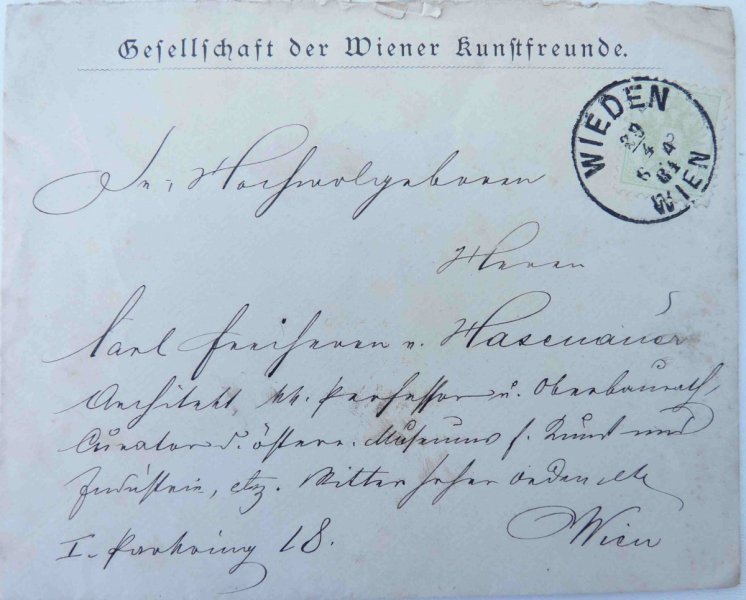 Gesellschaft der Wiener Kunstfreunde.
WIEDEN
29
4 4
6 84
WIEN
Sr. Hochwolgeboren
Herrn
Karl Freiherrn v. Hasenauer
Architekt kk. Professor u. Oberbaurath,
Curator d. österr. Museums f. Kunst und
Industrie, etz. Ritter hoher Orden etc
I. Parkring 18. Wien